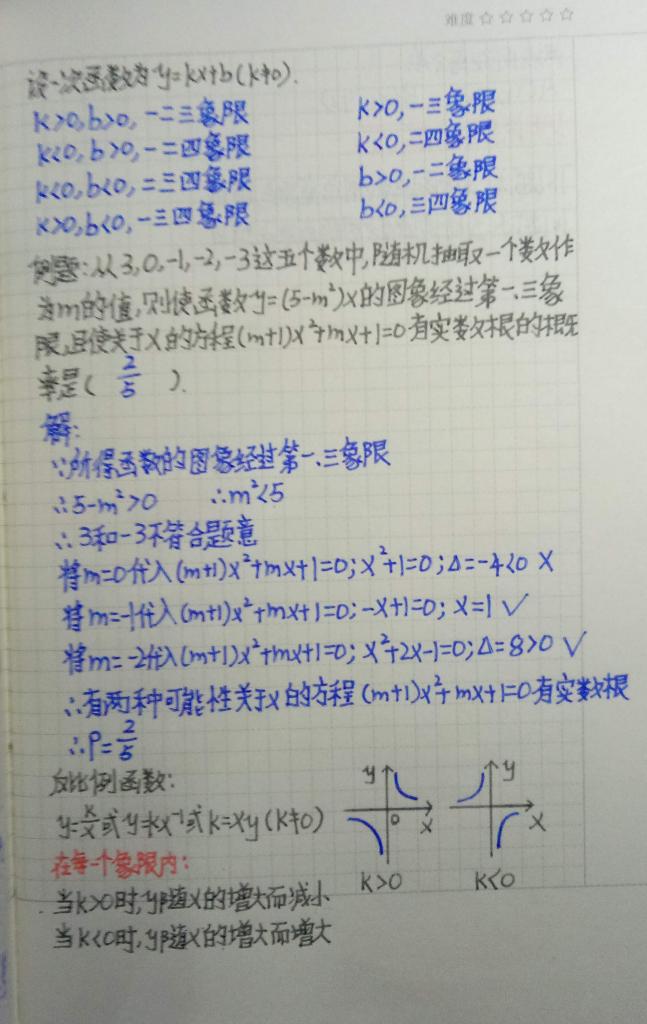 难度 ☆ ☆ ☆ ☆ ☆
设一次函数为y=kx+b(k≠0).
k>0,b>0,一二三象限
k<0,b>0,一二四象限
k<0,b<0,二三四象限
k>0,b<0,一三四象限
k>0,一三象限
k<0,二四象限
b>0,一二象限
b<0,三四象限
例题:从3,0,-1,-2,-3这五个数中,随机抽取一个数作
为m的值,则使函数y=(5-m²)x的图象经过第一、三象
限,且使关于x的方程(m+1)x²+mx+1=0有实数根的概
率是( 2/5 ).
解:
∵所得函数的图象经过第一、三象限
∴5-m²>0 ∴m²<5
∴3和-3不符合题意
将m=0代入(m+1)x²+mx+1=0;x²+1=0;Δ=-4<0 ×
将m=-1代入(m+1)x²+mx+1=0;-x+1=0;x=1 √
将m=-2代入(m+1)x²+mx+1=0;x²+2x-1=0;Δ=8>0 √
∴有两种可能性关于x的方程(m+1)x²+mx+1=0有实数根
∴P=2/5
反比例函数:
y=k/x或y=kx⁻¹或k=xy(k≠0)
在每一个象限内:
当k>0时,y随x的增大而减小
当k<0时,y随x的增大而增大
y
0
x
k>0
y
x
k<0